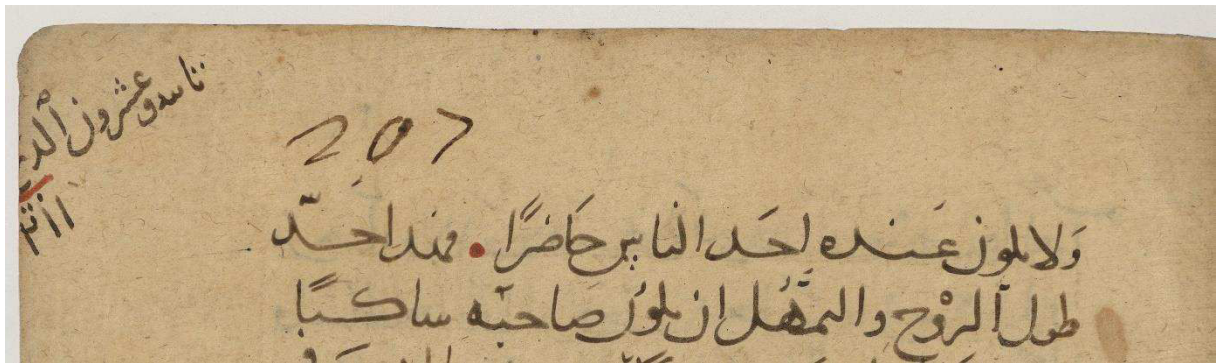 تاسع وعشرون
207
ولا يكون عنده احد الناس حاضرًا. فهذا حدّ
طول الروح والتمهّل ان يكون صاحبه ساكتًا